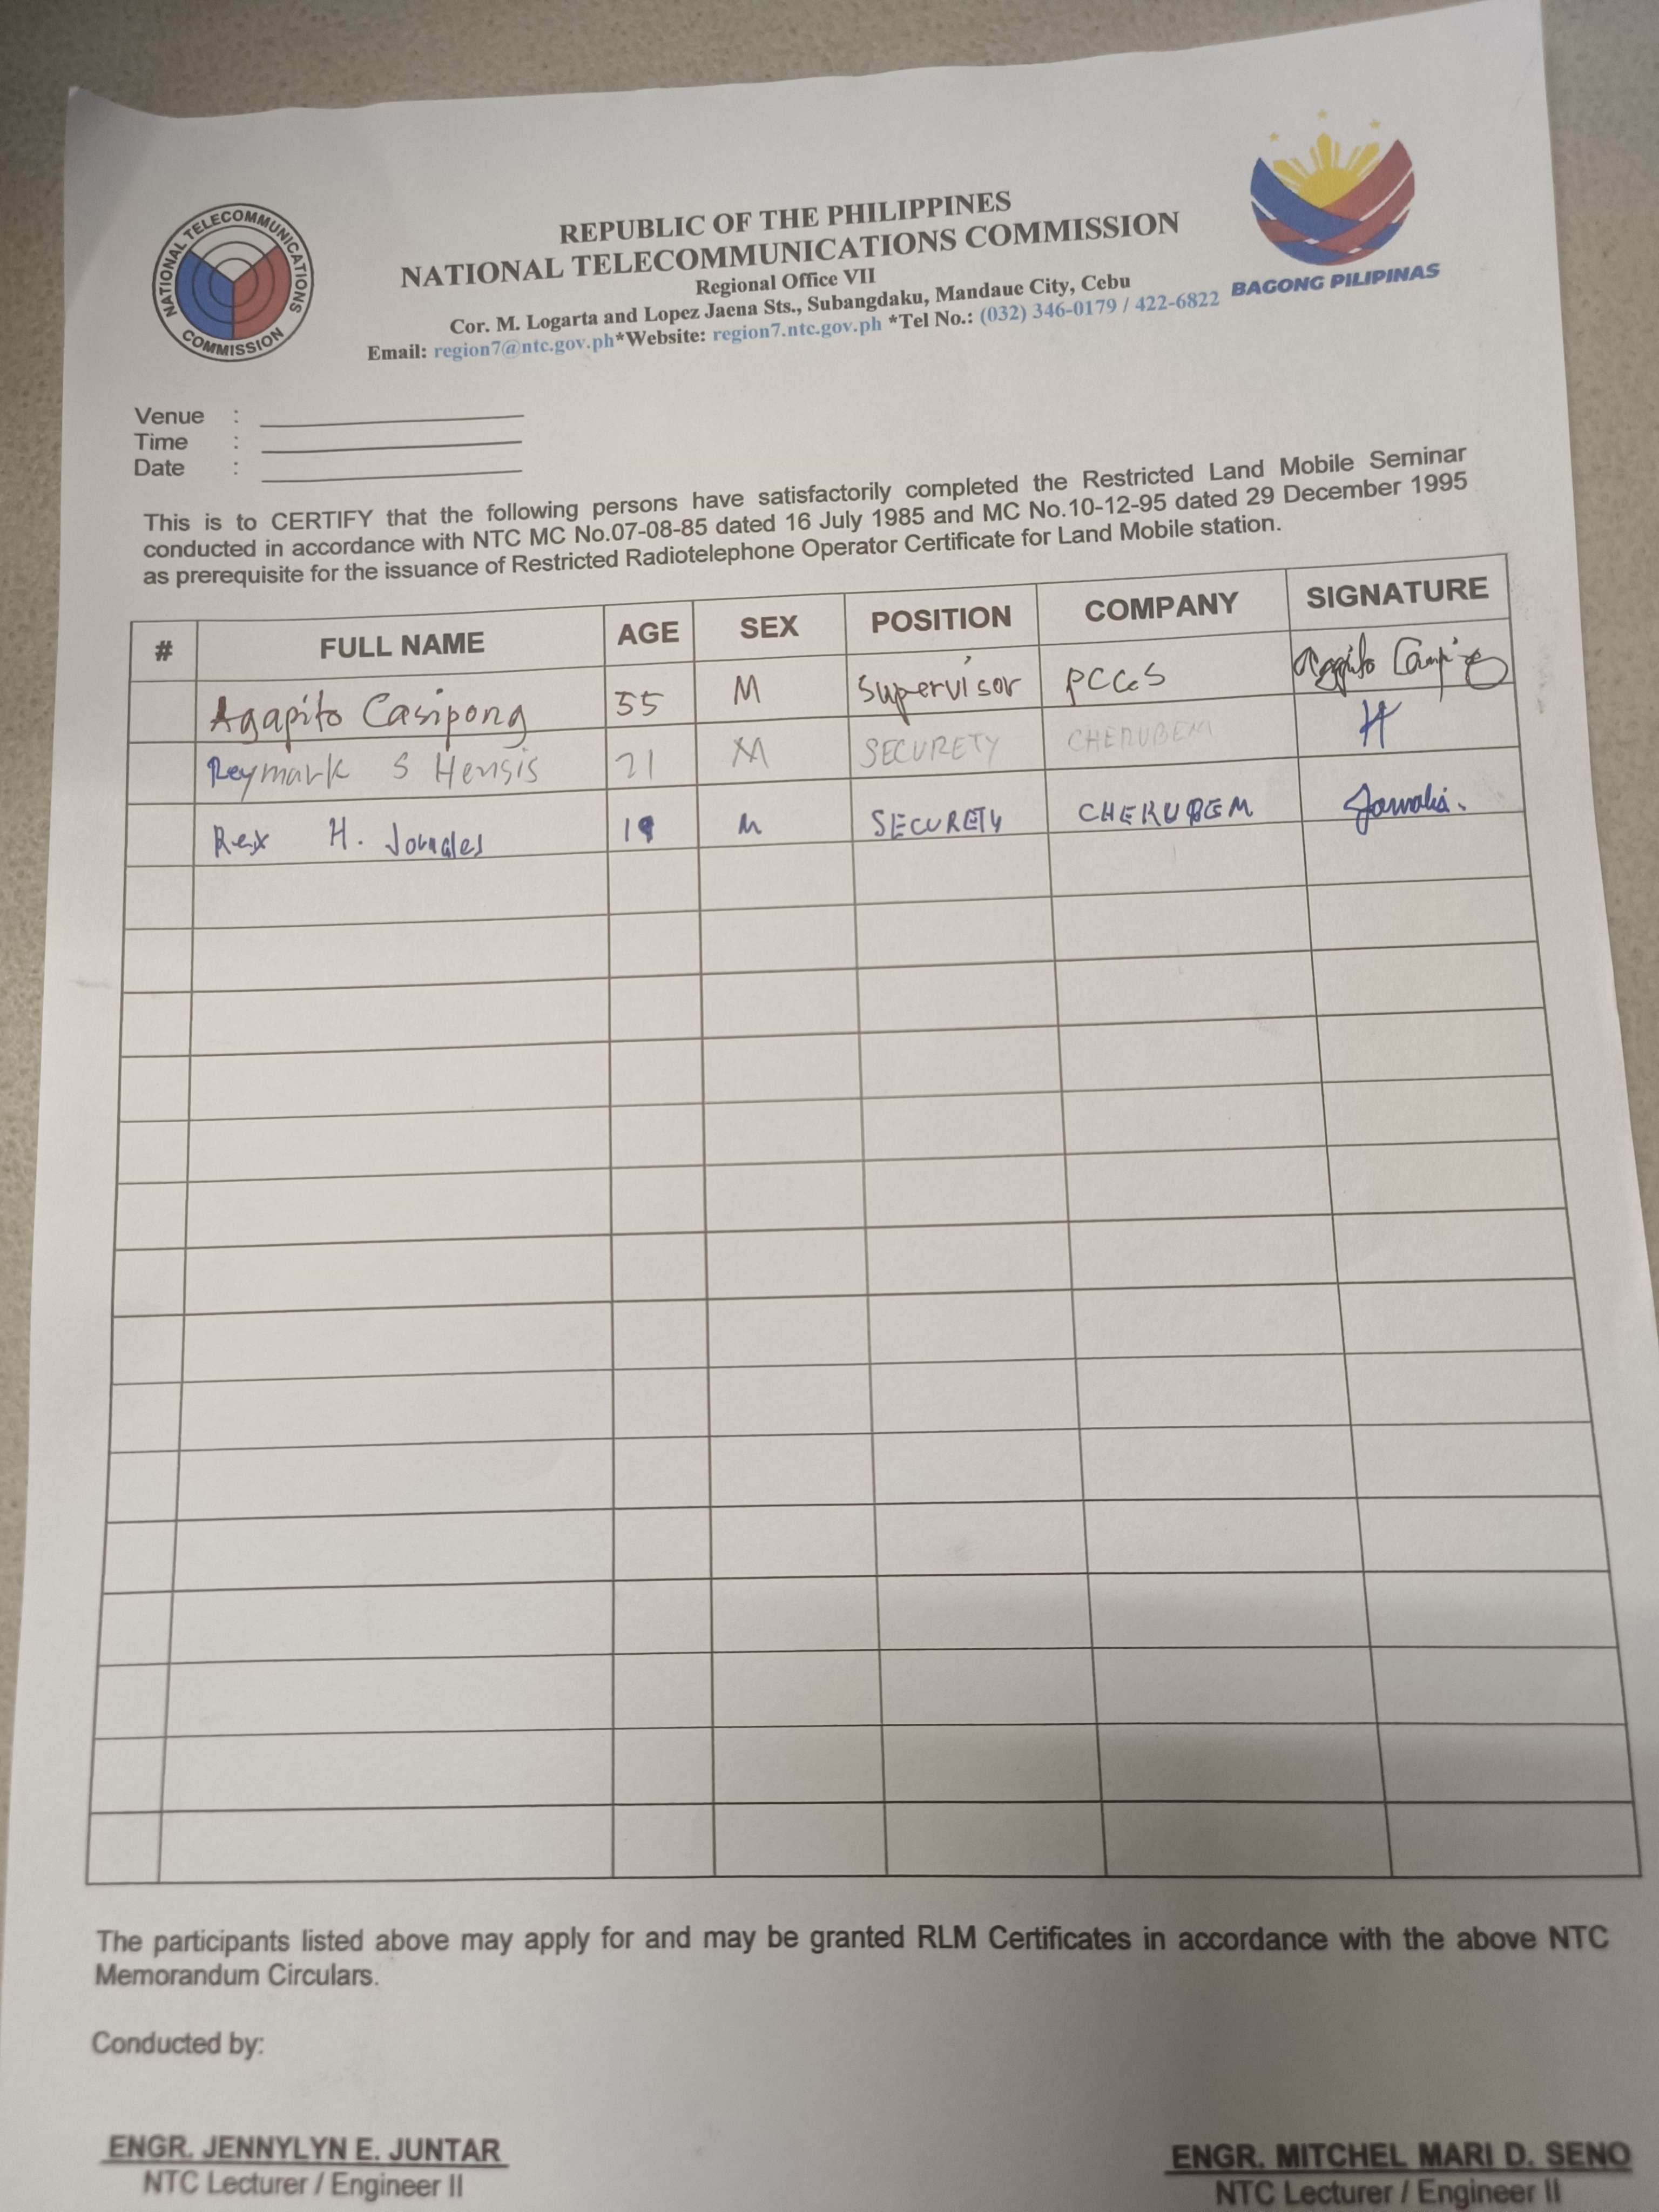 NATIONAL TELECOMMUNICATIONS COMMISSION
REPUBLIC OF THE PHILIPPINES
NATIONAL TELECOMMUNICATIONS COMMISSION
Regional Office VII
Cor. M. Logarta and Lopez Jaena Sts., Subangdaku, Mandaue City, Cebu
Email: region7@ntc.gov.ph*Website: region7.ntc.gov.ph *Tel No.: (032) 346-0179 / 422-6822
BAGONG PILIPINAS
Venue :
Time :
Date :
This is to CERTIFY that the following persons have satisfactorily completed the Restricted Land Mobile Seminar
conducted in accordance with NTC MC No.07-08-85 dated 16 July 1985 and MC No.10-12-95 dated 29 December 1995
as prerequisite for the issuance of Restricted Radiotelephone Operator Certificate for Land Mobile station.
# FULL NAME AGE SEX POSITION COMPANY SIGNATURE
Agapito Casipong 55 M Supervisor Agapito
Reymark S Hensis 21 M SECURETY CHERUBEM
Rex H. 19 M SECURETY CHERUBEM
The participants listed above may apply for and may be granted RLM Certificates in accordance with the above NTC
Memorandum Circulars.
Conducted by:
ENGR. JENNYLYN E. JUNTAR
NTC Lecturer / Engineer II
ENGR. MITCHEL MARI D. SENO
NTC Lecturer / Engineer II